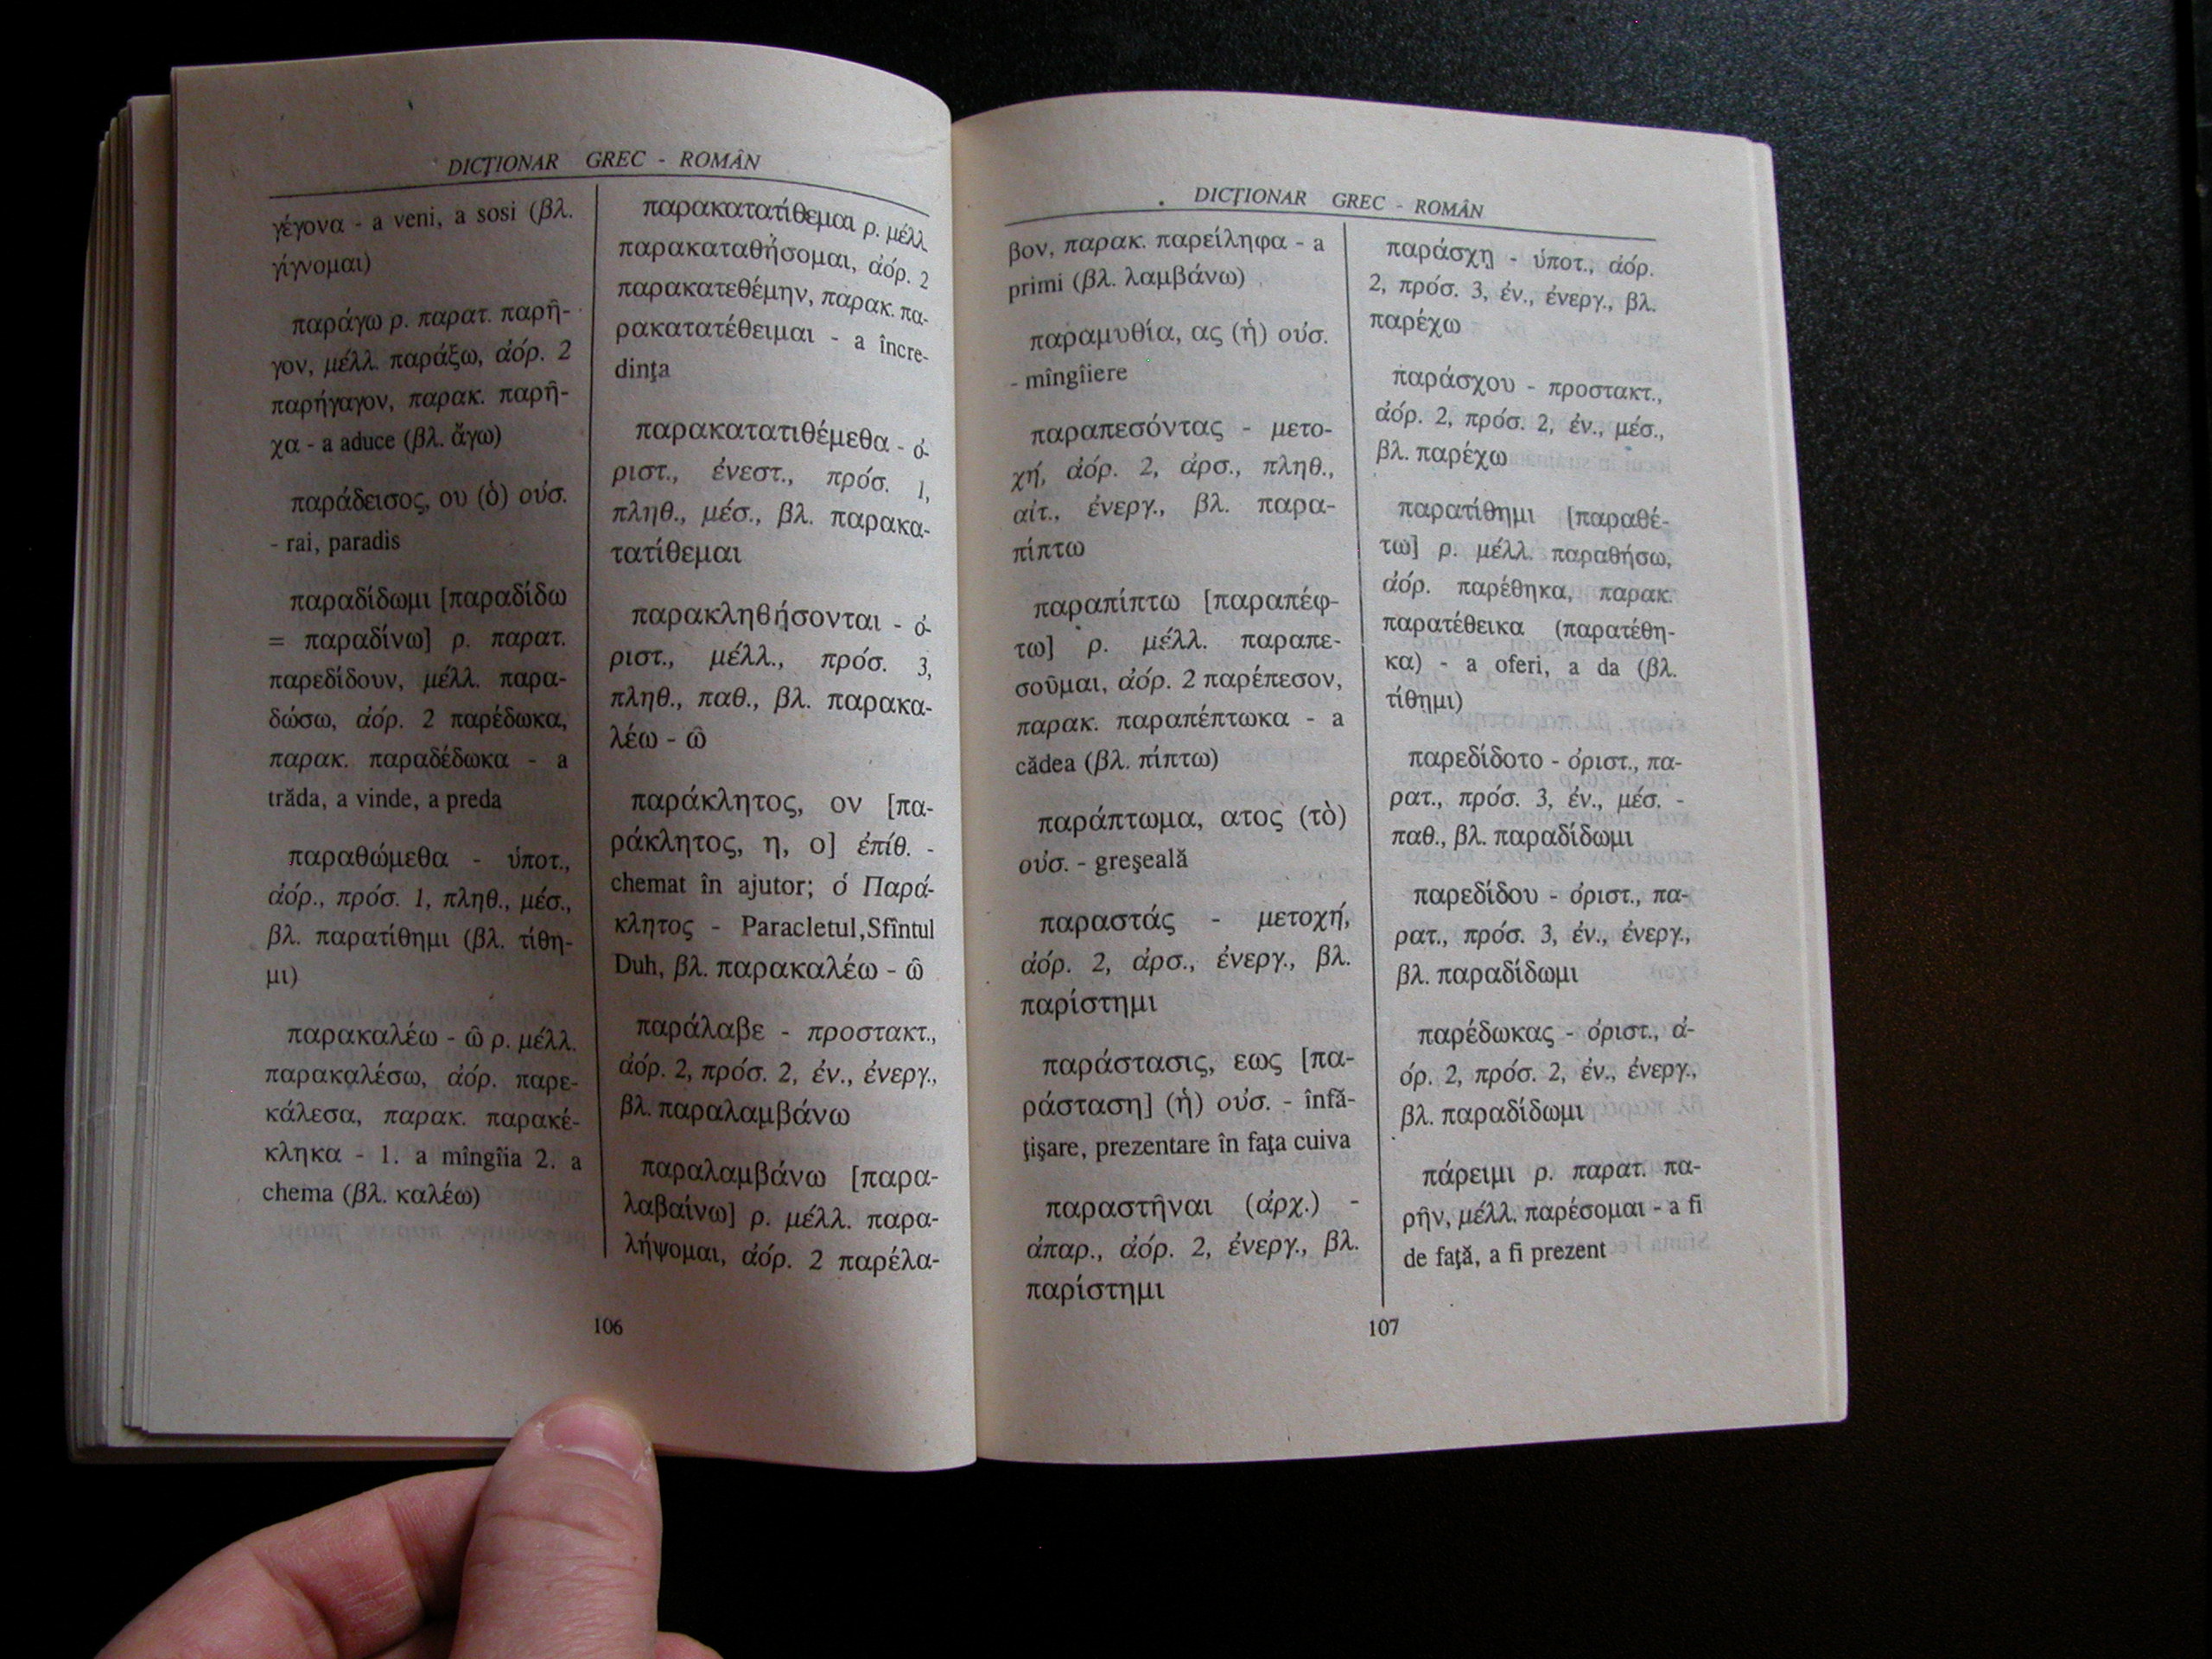 DICŢIONAR GREC - ROMÂN
γέγονα - a veni, a sosi (βλ.
γίγνομαι)
παράγω ρ. παρατ. παρῆ-
γον, μέλλ. παράξω, ἀόρ. 2
παρήγαγον, παρακ. παρῆ-
χα - a aduce (βλ. ἄγω)
παράδεισος, ου (ὁ) οὐσ.
- rai, paradis
παραδίδωμι [παραδίδω
= παραδίνω] ρ. παρατ.
παρεδίδουν, μέλλ. παρα-
δώσω, ἀόρ. 2 παρέδωκα,
παρακ. παραδέδωκα - a
trăda, a vinde, a preda
παραθώμεθα - ὑποτ.,
ἀόρ., πρόσ. 1, πληθ., μέσ.,
βλ. παρατίθημι (βλ. τίθη-
μι)
παρακαλέω - ῶ ρ. μέλλ.
παρακαλέσω, ἀόρ. παρε-
κάλεσα, παρακ. παρακέ-
κληκα - 1. a mîngîia 2. a
chema (βλ. καλέω)
παρακατατίθεμαι ρ. μέλλ.
παρακαταθήσομαι, ἀόρ. 2
παρακατεθέμην, παρακ. πα-
ρακατατέθειμαι - a încre-
dinţa
παρακατατιθέμεθα - ὁ-
ριστ., ἐνεστ., πρόσ. 1,
πληθ., μέσ., βλ. παρακα-
τατίθεμαι
παρακληθήσονται - ὁ-
ριστ., μέλλ., πρόσ. 3,
πληθ., παθ., βλ. παρακα-
λέω - ῶ
παράκλητος, ον [πα-
ράκλητος, η, ο] ἐπίθ. -
chemat în ajutor; ὁ Παρά-
κλητος - Paracletul,Sfîntul
Duh, βλ. παρακαλέω - ῶ
παράλαβε - προστακτ.,
ἀόρ. 2, πρόσ. 2, ἐν., ἐνεργ.,
βλ. παραλαμβάνω
παραλαμβάνω [παρα-
λαβαίνω] ρ. μέλλ. παρα-
λήψομαι, ἀόρ. 2 παρέλα-
106
DICŢIONAR GREC - ROMÂN
βον, παρακ. παρείληφα - a
primi (βλ. λαμβάνω)
παραμυθία, ας (ἡ) οὐσ.
- mîngîiere
παραπεσόντας - μετο-
χή, ἀόρ. 2, ἀρσ., πληθ.,
αἰτ., ἐνεργ., βλ. παρα-
πίπτω
παραπίπτω [παραπέφ-
τω] ρ. μέλλ. παραπε-
σοῦμαι, ἀόρ. 2 παρέπεσον,
παρακ. παραπέπτωκα - a
cădea (βλ. πίπτω)
παράπτωμα, ατος (τὸ)
οὐσ. - greşeală
παραστάς - μετοχή,
ἀόρ. 2, ἀρσ., ἐνεργ., βλ.
παρίστημι
παράστασις, εως [πα-
ράσταση] (ἡ) οὐσ. - înfă-
ţişare, prezentare în faţa cuiva
παραστῆναι (ἀρχ.) -
ἀπαρ., ἀόρ. 2, ἐνεργ., βλ.
παρίστημι
παράσχῃ - ὑποτ., ἀόρ.
2, πρόσ. 3, ἐν., ἐνεργ., βλ.
παρέχω
παράσχου - προστακτ.,
ἀόρ. 2, πρόσ. 2, ἐν., μέσ.,
βλ. παρέχω
παρατίθημι [παραθέ-
τω] ρ. μέλλ. παραθήσω,
ἀόρ. παρέθηκα, παρακ.
παρατέθεικα (παρατέθη-
κα) - a oferi, a da (βλ.
τίθημι)
παρεδίδοτο - ὁριστ., πα-
ρατ., πρόσ. 3, ἐν., μέσ. -
παθ., βλ. παραδίδωμι
παρεδίδου - ὁριστ., πα-
ρατ., πρόσ. 3, ἐν., ἐνεργ.,
βλ. παραδίδωμι
παρέδωκας - ὁριστ., ἀ-
όρ. 2, πρόσ. 2, ἐν., ἐνεργ.,
βλ. παραδίδωμι
πάρειμι ρ. παρατ. πα-
ρῆν, μέλλ. παρέσομαι - a fi
de faţă, a fi prezent
107